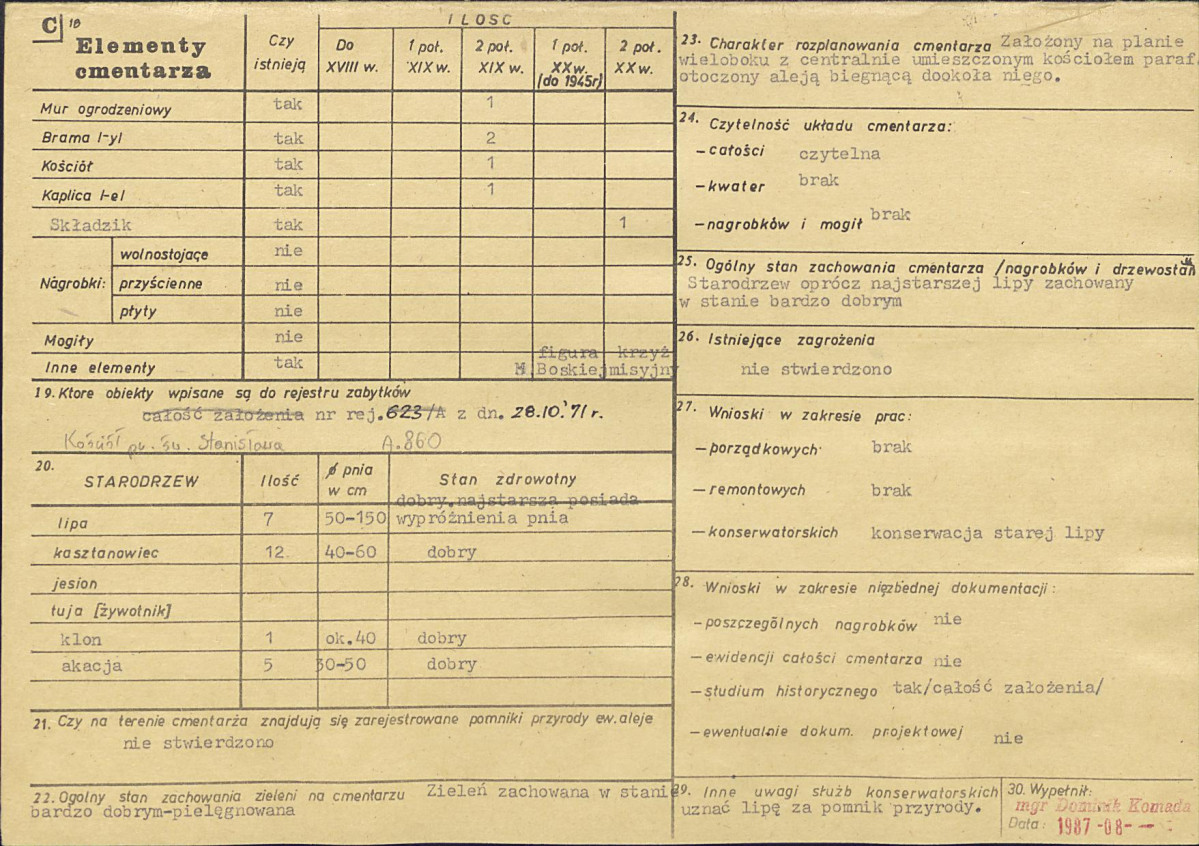 C 18
Elementy cmentarza
Czy istnieją
ILOSC
Do XVIII w.
1 poł. XIX w.
2 poł. XIX w.
1 poł. XX w. (do 1945r)
2 poł. XX w.
Mur ogrodzeniowy tak 1
Brama /-y/ tak 2
Kościół tak 1
Kaplica /-e/ tak 1
Składzik tak 1
Nagrobki: wolnostojące nie
przyścienne nie
płyty nie
Mogiły nie
Inne elementy tak figura M.Boskiej krzyż misyjny
19. Ktore obiekty wpisane są do rejestru zabytków
całość założenia nr rej. 623/A z dn. 28.10.'71 r.
Kościół pw. św. Stanisława A.860
20.
STARODRZEW Ilość ø pnia w cm Stan zdrowotny
lipa 7 50-150 dobry, najstarsza posiada wypróżnienia pnia
kasztanowiec 12 40-60 dobry
jesion
tuja [żywotnik]
klon 1 ok.40 dobry
akacja 5 30-50 dobry
21. Czy na terenie cmentarża znajdują się zarejestrowane pomniki przyrody ew. aleje
nie stwierdzono
22. Ogolny stan zachowania zieleni na cmentarzu Zieleń zachowana w stanie
bardzo dobrym-pielęgnowana
23. Charakter rozplanowania cmentarza Założony na planie
wieloboku z centralnie umieszczonym kościołem paraf.
otoczony aleją biegnącą dookoła niego.
24. Czytelność układu cmentarza:
- całości czytelna
- kwater brak
- nagrobków i mogił brak
25. Ogólny stan zachowania cmentarza /nagrobków i drzewostan
Starodrzew oprócz najstarszej lipy zachowany
w stanie bardzo dobrym
26. Istniejące zagrożenia
nie stwierdzono
27. Wnioski w zakresie prac:
- porządkowych brak
- remontowych brak
- konserwatorskich konserwacja starej lipy
28. Wnioski w zakresie nięzbednej dokumentacji:
- poszczególnych nagrobków nie
- ewidencji całości cmentarza nie
- studium historycznego tak/całość założenia/
- ewentualnie dokum. projektowej nie
29. Inne uwagi służb konserwatorskich
uznać lipę za pomnik przyrody.
30. Wypełnił:
mgr Dominik Komada
Data: 1987 -08- -